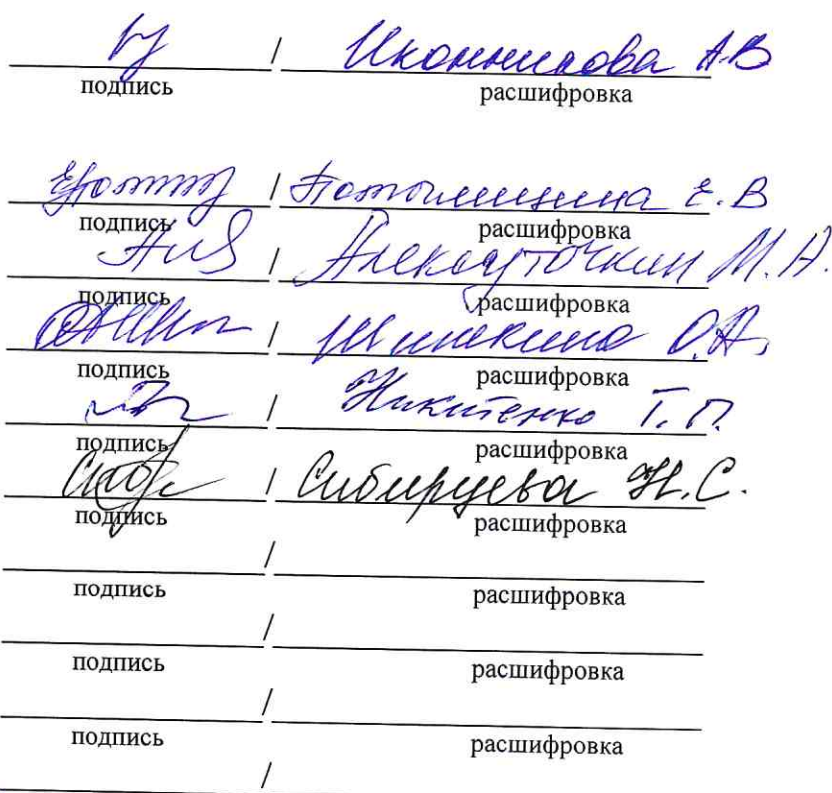 / Иконникова А.В
подпись расшифровка
/ Потылицина Е.В
подпись расшифровка
/ Алексуточкин М.А.
подпись расшифровка
/ Шишкина О.А.
подпись расшифровка
/ Никитенко Т.П.
подпись расшифровка
/ Сибирцева Н.С.
подпись расшифровка
/
подпись расшифровка
/
подпись расшифровка
/
подпись расшифровка
/